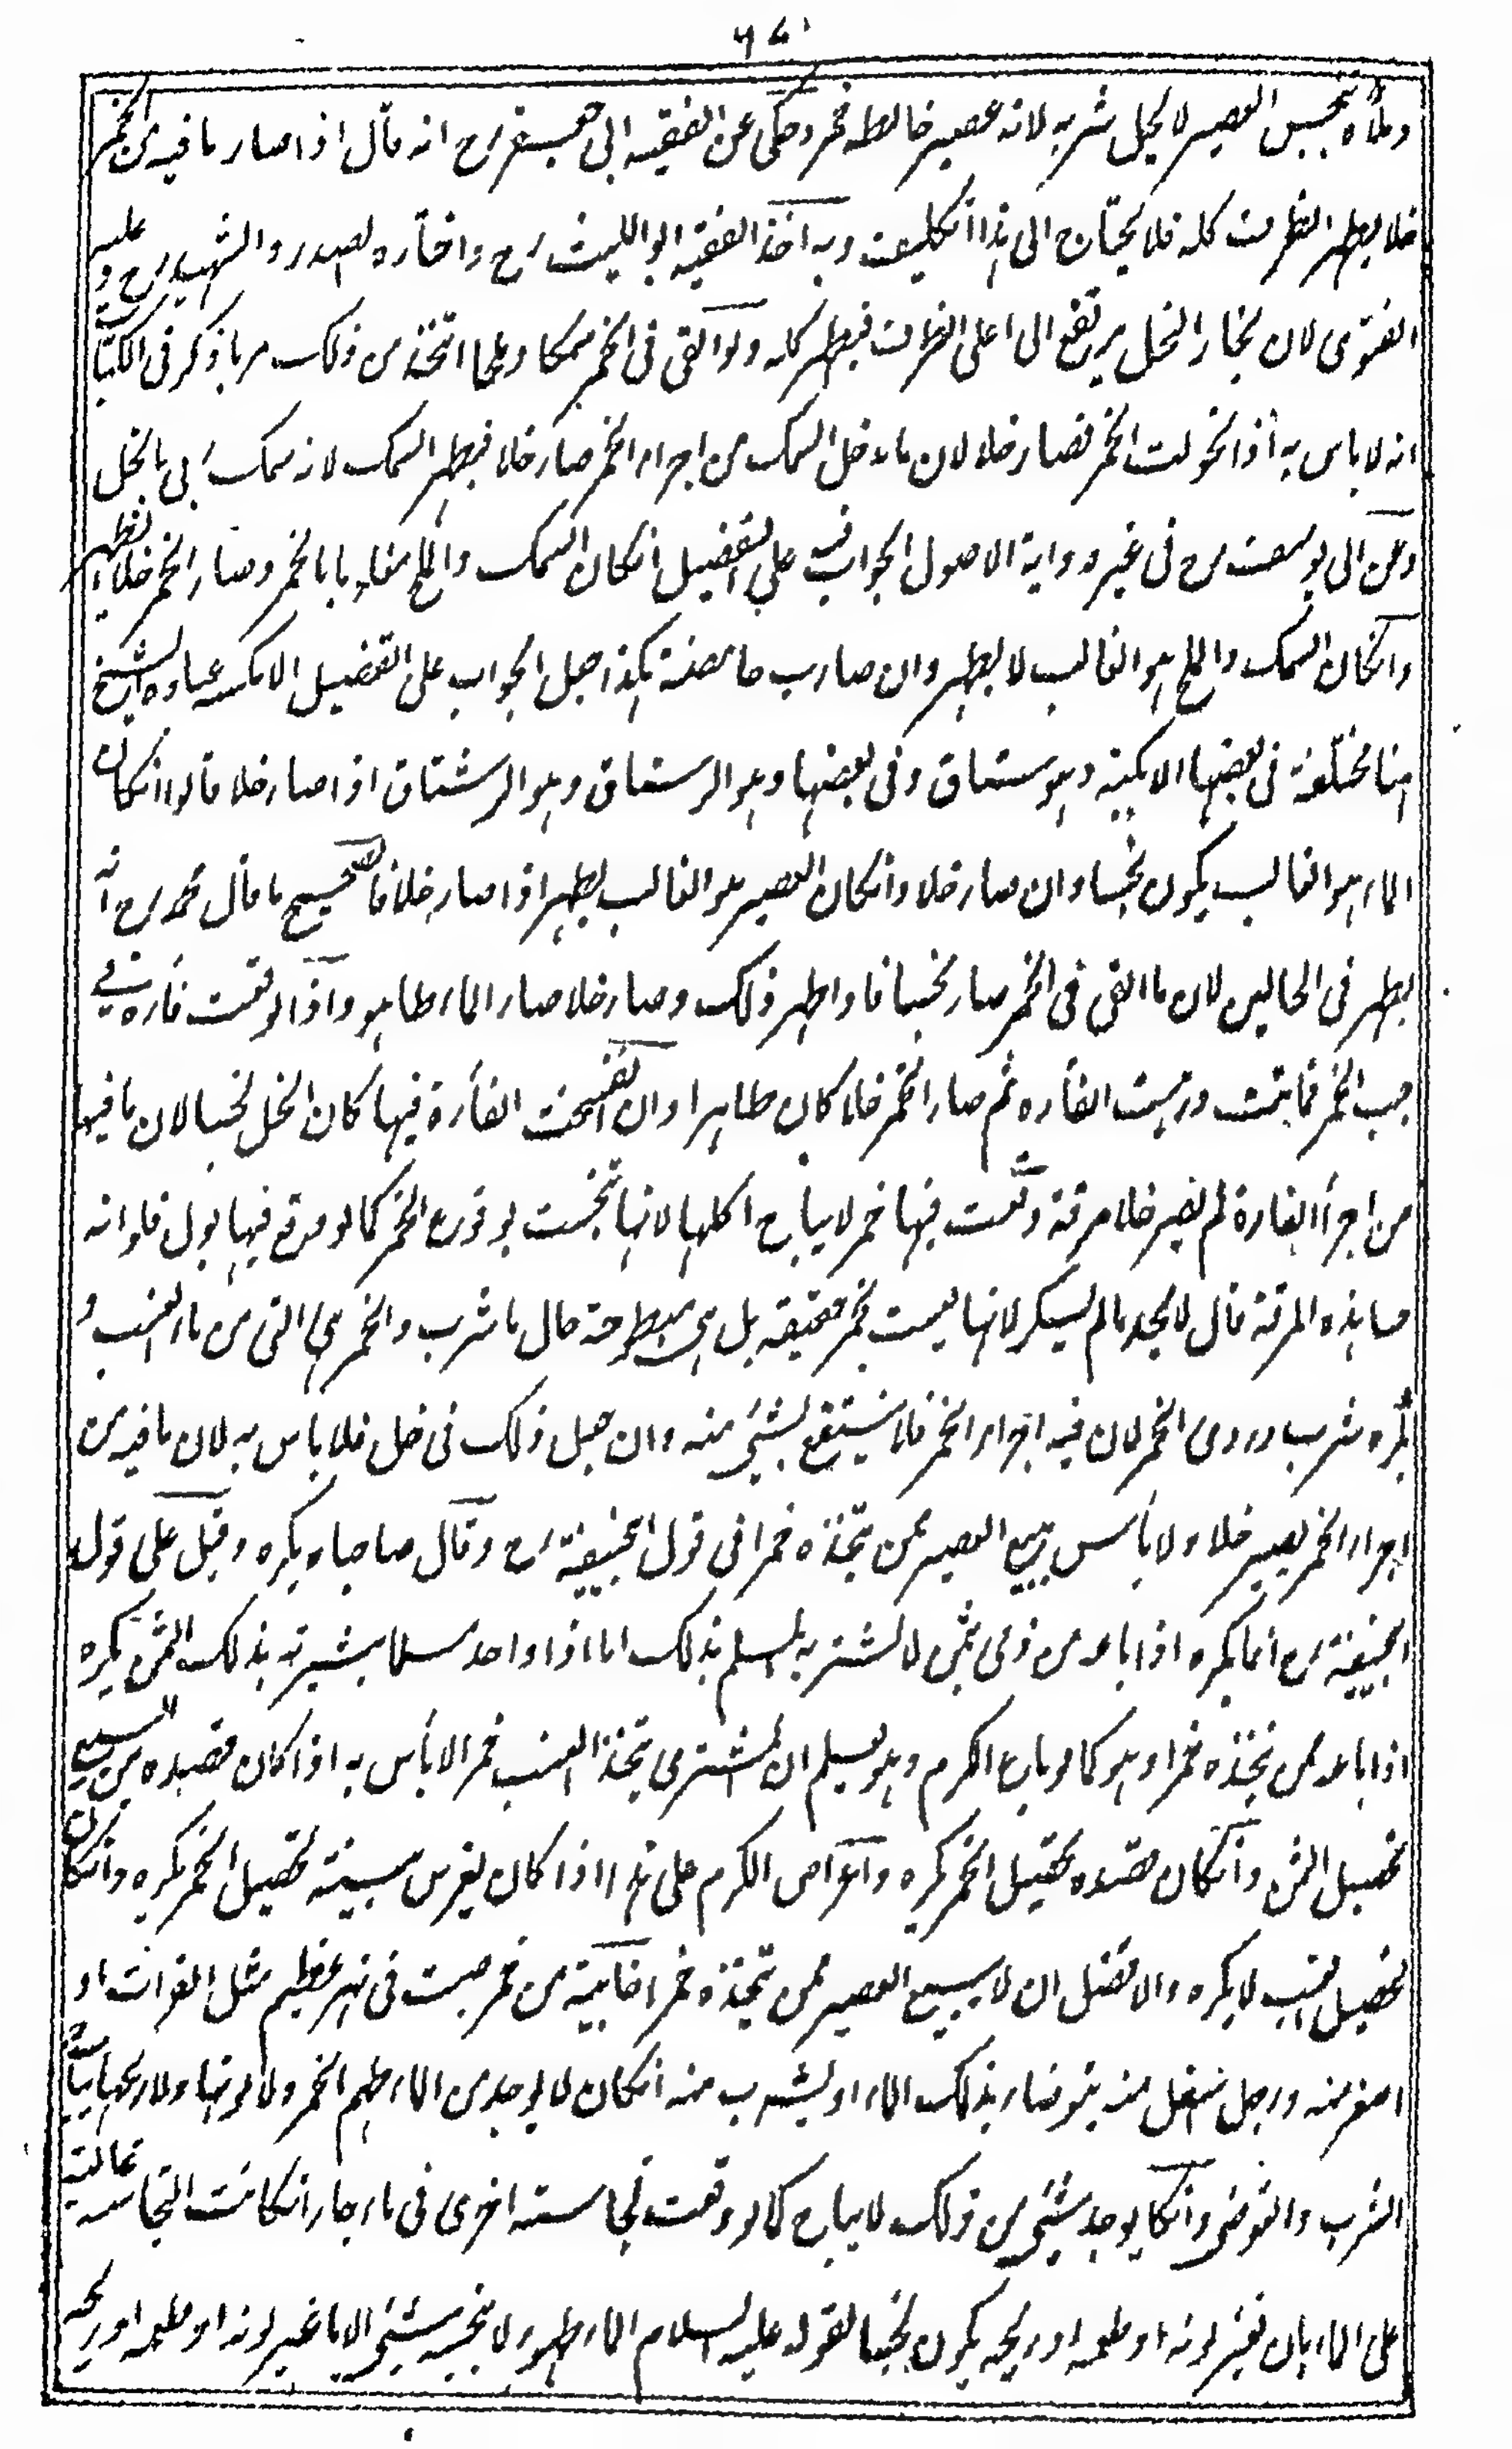 وملأه بنجس العصير لا يحل شربه لانه عصير خالطه خمر وحكى عن الفقيه ابى جعفر رح انه قال اذا صار ما فيه من الخمر
خلا يطهر الظرف كله فلا يحتاج الى هذا التكليف وبه اخذ الفقيه ابو الليث رح واختاره الصدر والشهيد رح وعليه
الفتوى لان بخار الخل يرتفع الى اعلى الظرف فيطهر كله ولو القى فى الخمر سمكا وملحا اتخذ من ذلك مربا ذكر فى الكتاب
انه لا باس به اذا تحولت الخمر فصار خلا لان ما دخل السمك من اجزاء الخمر صار خلا فيطهر السمك لانه سمك ربى بالخل
وعن ابى يوسف رح فى غير رواية الاصول الجواب فيه على التفضيل انكان السمك والملح مغلوبا بالخمر وصار الخمر خلا يطهر
وانكان السمك والملح هو الغالب لا يطهر وان صارب حامضة هكذا جعل الجواب على التفضيل الا عباره الشيخ
هنا مختلفة فى بعضها وهو ستاق وفى بعضها وهو الرستاق وهو الرشتاق اذا صار خلا قالوا انكان
الماء هو الغالب يكون نجسا وان صار خلا وانكان العصير هو الغالب يطهر اذا صار خلا فالصحيح ما قال محمد رح انه
يطهر فى الحالين لان ما القى فى الخمر صار نجسا فاذا طهر ذلك وصار خلا صار الماء طاهرا واذا وقعت فاره فى
حب الخمر فماتت ورميت الفاره ثم صار الخمر خلا كان طاهرا وان تفسخت الفأرة فيها كان الخل نجسا لان ما فيها
من اجزأ الفارة لم يصر خلا مرقة وقعت فيها خمر لا يباح اكلها لانها تنجست بوقوع الخمر كما لو وقع فيها بول فلو انه
حسا هذه المرقة قال لا يحد ما لم يسكر لانها ليست بخمر حقيقه بل هى مطبوخة حال ما شرب والخمر هى التى من ماء العنب و
يكره شرب دردى الخمر لان فيه اجزاء الخمر فلا ينتفع بشئ منه وان جعل ذلك فى خل فلا باس به لان ما فيه من
اجزاء الخمر يصير خلا ولا بأس ببيع العصير ممن يتخذه خمرا فى قول ابيحنيفة رح وقال صاحباه يكره وقيل على قول
ابيحنيفة رح انما يكره اذا باعه من ذمى بثمن لا يشتريه المسلم بذلك اما اذا وجد مسلما يشتريه بذلك الثمن يكره
اذا باعه ممن يتخذه خمرا وهو كما لو باع الكرم وهو يعلم ان المشترى يتخذ العنب خمرا لا بأس به اذا كان قصده من البيع
تحصيل الثمن وانكان قصده تحصيل الخمر يكره وغراص الكرم على هذا اذا كان يغرس بنية تحصيل الخمر يكره وانكان
تحصيل العنب لا يكره والافضل ان لا يبيع العصير ممن يتخذه خمرا خابية من خمر صبت فى نهر عظيم مثل الفرات او
اصغر منه ورجل اسفل منه يتوضاء بذلك الماء او يشرب منه انكان لا يوجد من الماء طعم الخمر ولا لونها ولا ريحها يباح
الشرب والتوضى وانكا يوجد شئ من ذلك لا يباح كما لو وقعت نجاسة اخرى فى ماء جار انكانت النجاسة غالبة
على الماء بان تغير لونه او طعمه او ريحه يكون نجسا لقوله عليه السلام الماء طهور لا ينجسه شئ الا ما غير لونه او طعمه او ريحه